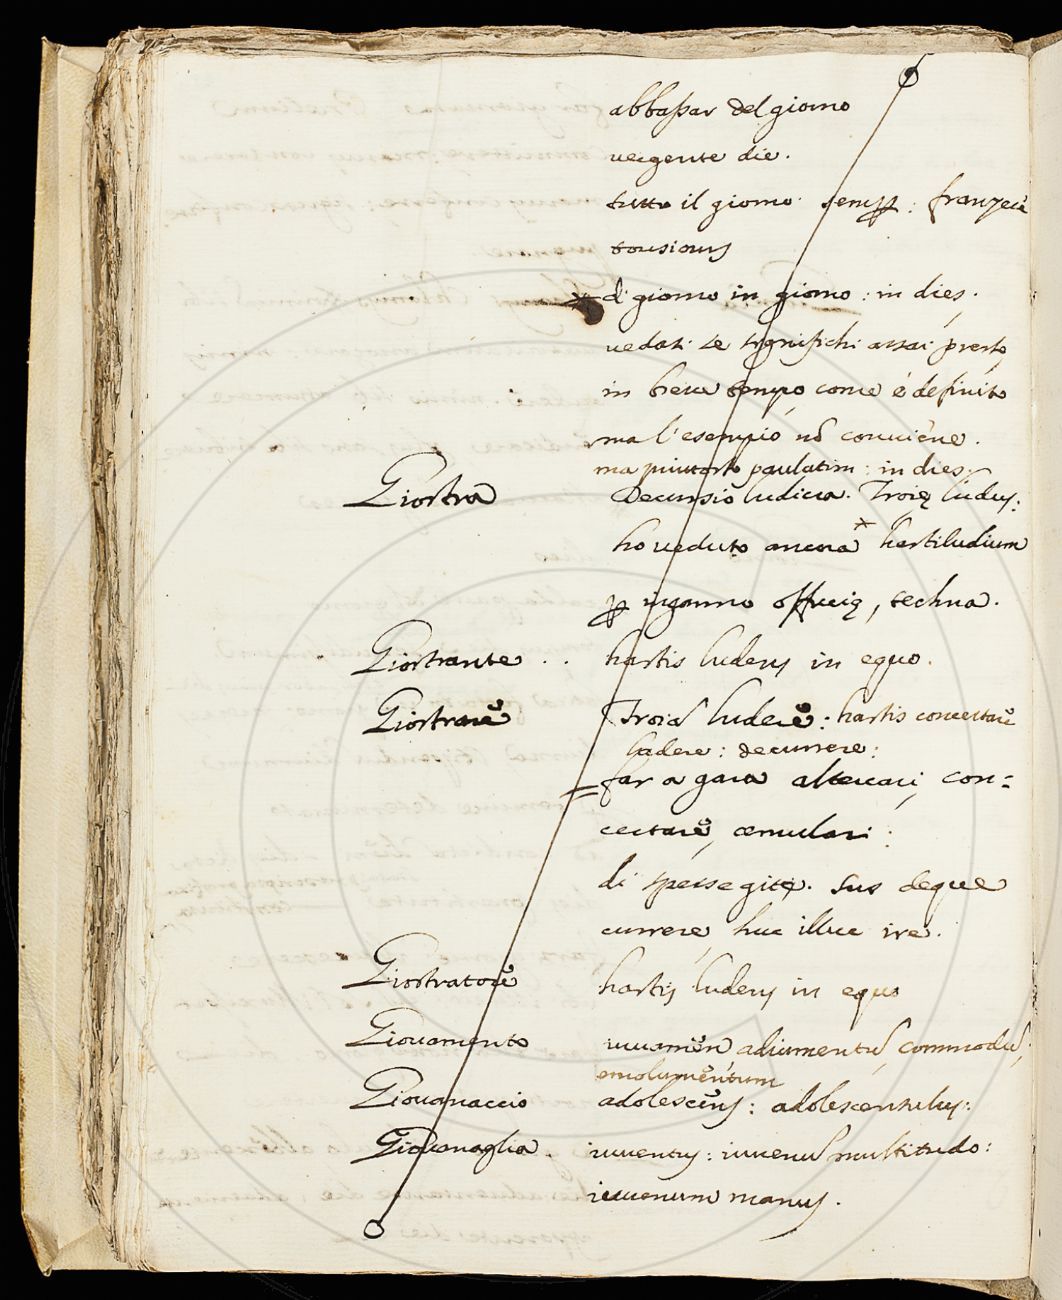 abbassar del giorno
vergente die.
tutto il giorno
di giorno in giorno : in dies.
vedasi se significhi assai presto
in breve tempo, come è definito
ma l'esempio nō conviene.
ma piuttosto paulatim : in dies.
Giostra Decursio ludicra. Troię ludus:
ho veduto ancora hastiludium
ꝑ inganno offucię, techna.
Giostrante .. hastis ludens in equo.
Giostrare Troiā ludere : hastis concertare
ludere : decurrere :
far a gara altercari, con=
certare, æmulari :
di spesse gite. sus deque
currere huc illuc ire.
Giostratore hastis ludens in equo
Giovamento iuvamen adiumentū, commodū,
emolumentum
Giovanaccio adolescens : adolescentulus.
Giovanaglia. iuventus : iuvenū multitudo :
iuvenum manus.